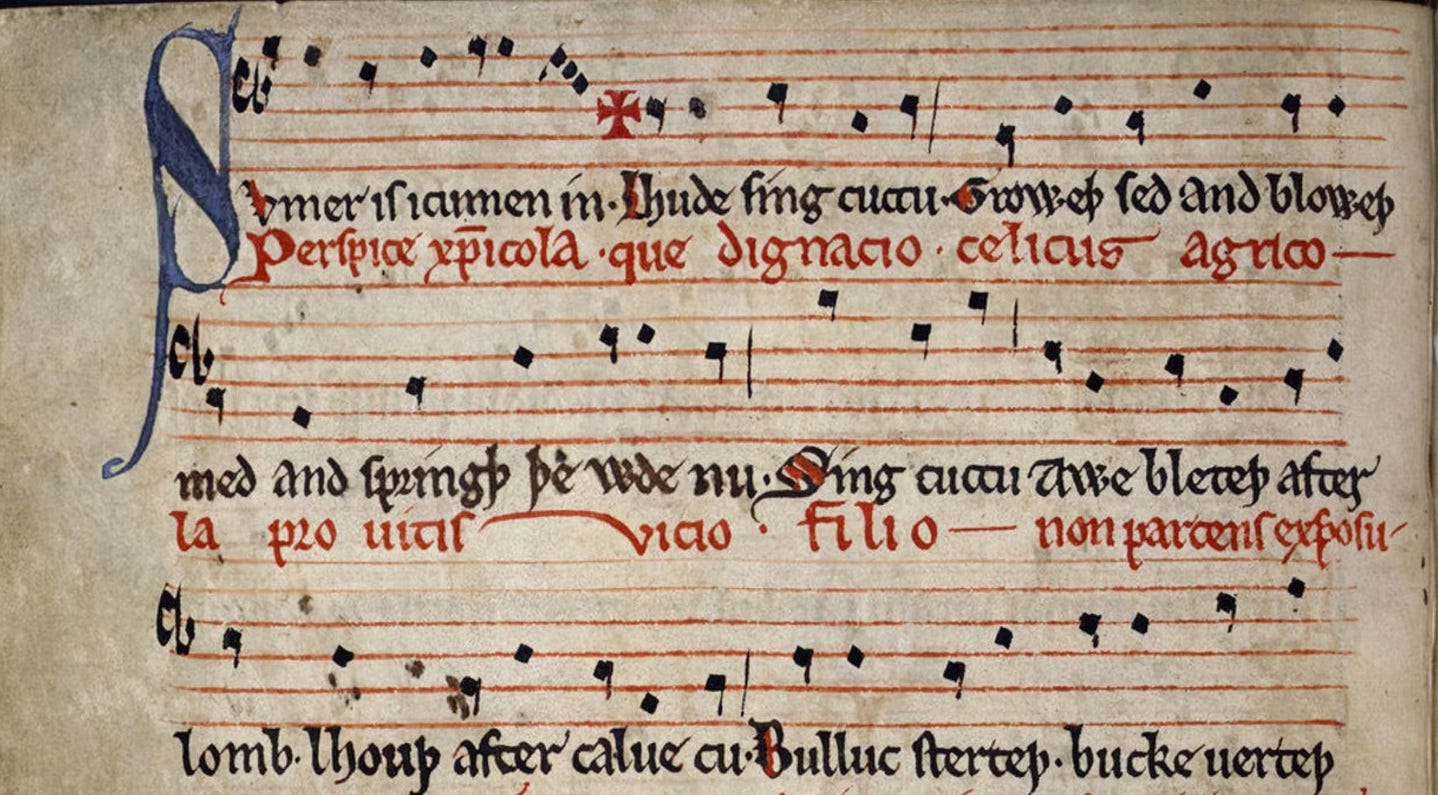 Svmer is icumen in· Lhude sing cuccu· Groweþ sed and bloweþ
Perspice xp̄icola · que dignacio · celicus agrico—
med and springþ þe wde nu· Sing cuccu Awe bleteþ after
la pro uitis vicio · filio — non parcens exposu-
lomb· lhouþ after calue cu· Bulluc sterteþ· bucke uerteþ